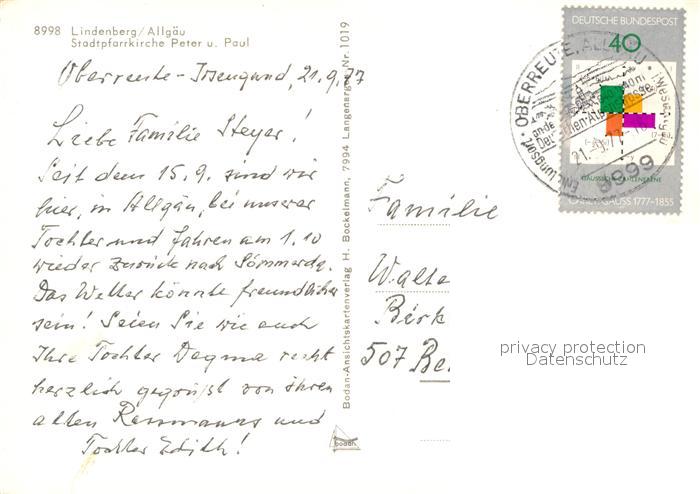 8998 Lindenberg/Allgäu
Stadtpfarrkirche Peter u. Paul
Oberreute-Irsengund, 21.9.77
Liebe Familie Steyer!
Seit dem 15.9. sind wir
hier, in Allgäu, bei unserer
Tochter und fahren am 1.10
wieder zurück nach Sömmerda.
Das Wetter könnte freundlicher
sein! Seien Sie wie auch
Ihre Tochter Dagma recht
herzlich gegrüßt von Ihren
alten Ressmanns und
Tochter Edith!
Bodan-Ansichtskartenverlag H. Bockelmann, 7994 Langenargen Nr. 1019
bodan
Familie
Walte
Birk
507 Be
DEUTSCHE BUNDESPOST
40
GAUSSSCHE ZAHLENEBENE
CARL F. GAUSS 1777-1855
OBERREUTE, ALLGÄU
8999
privacy protection
Datenschutz